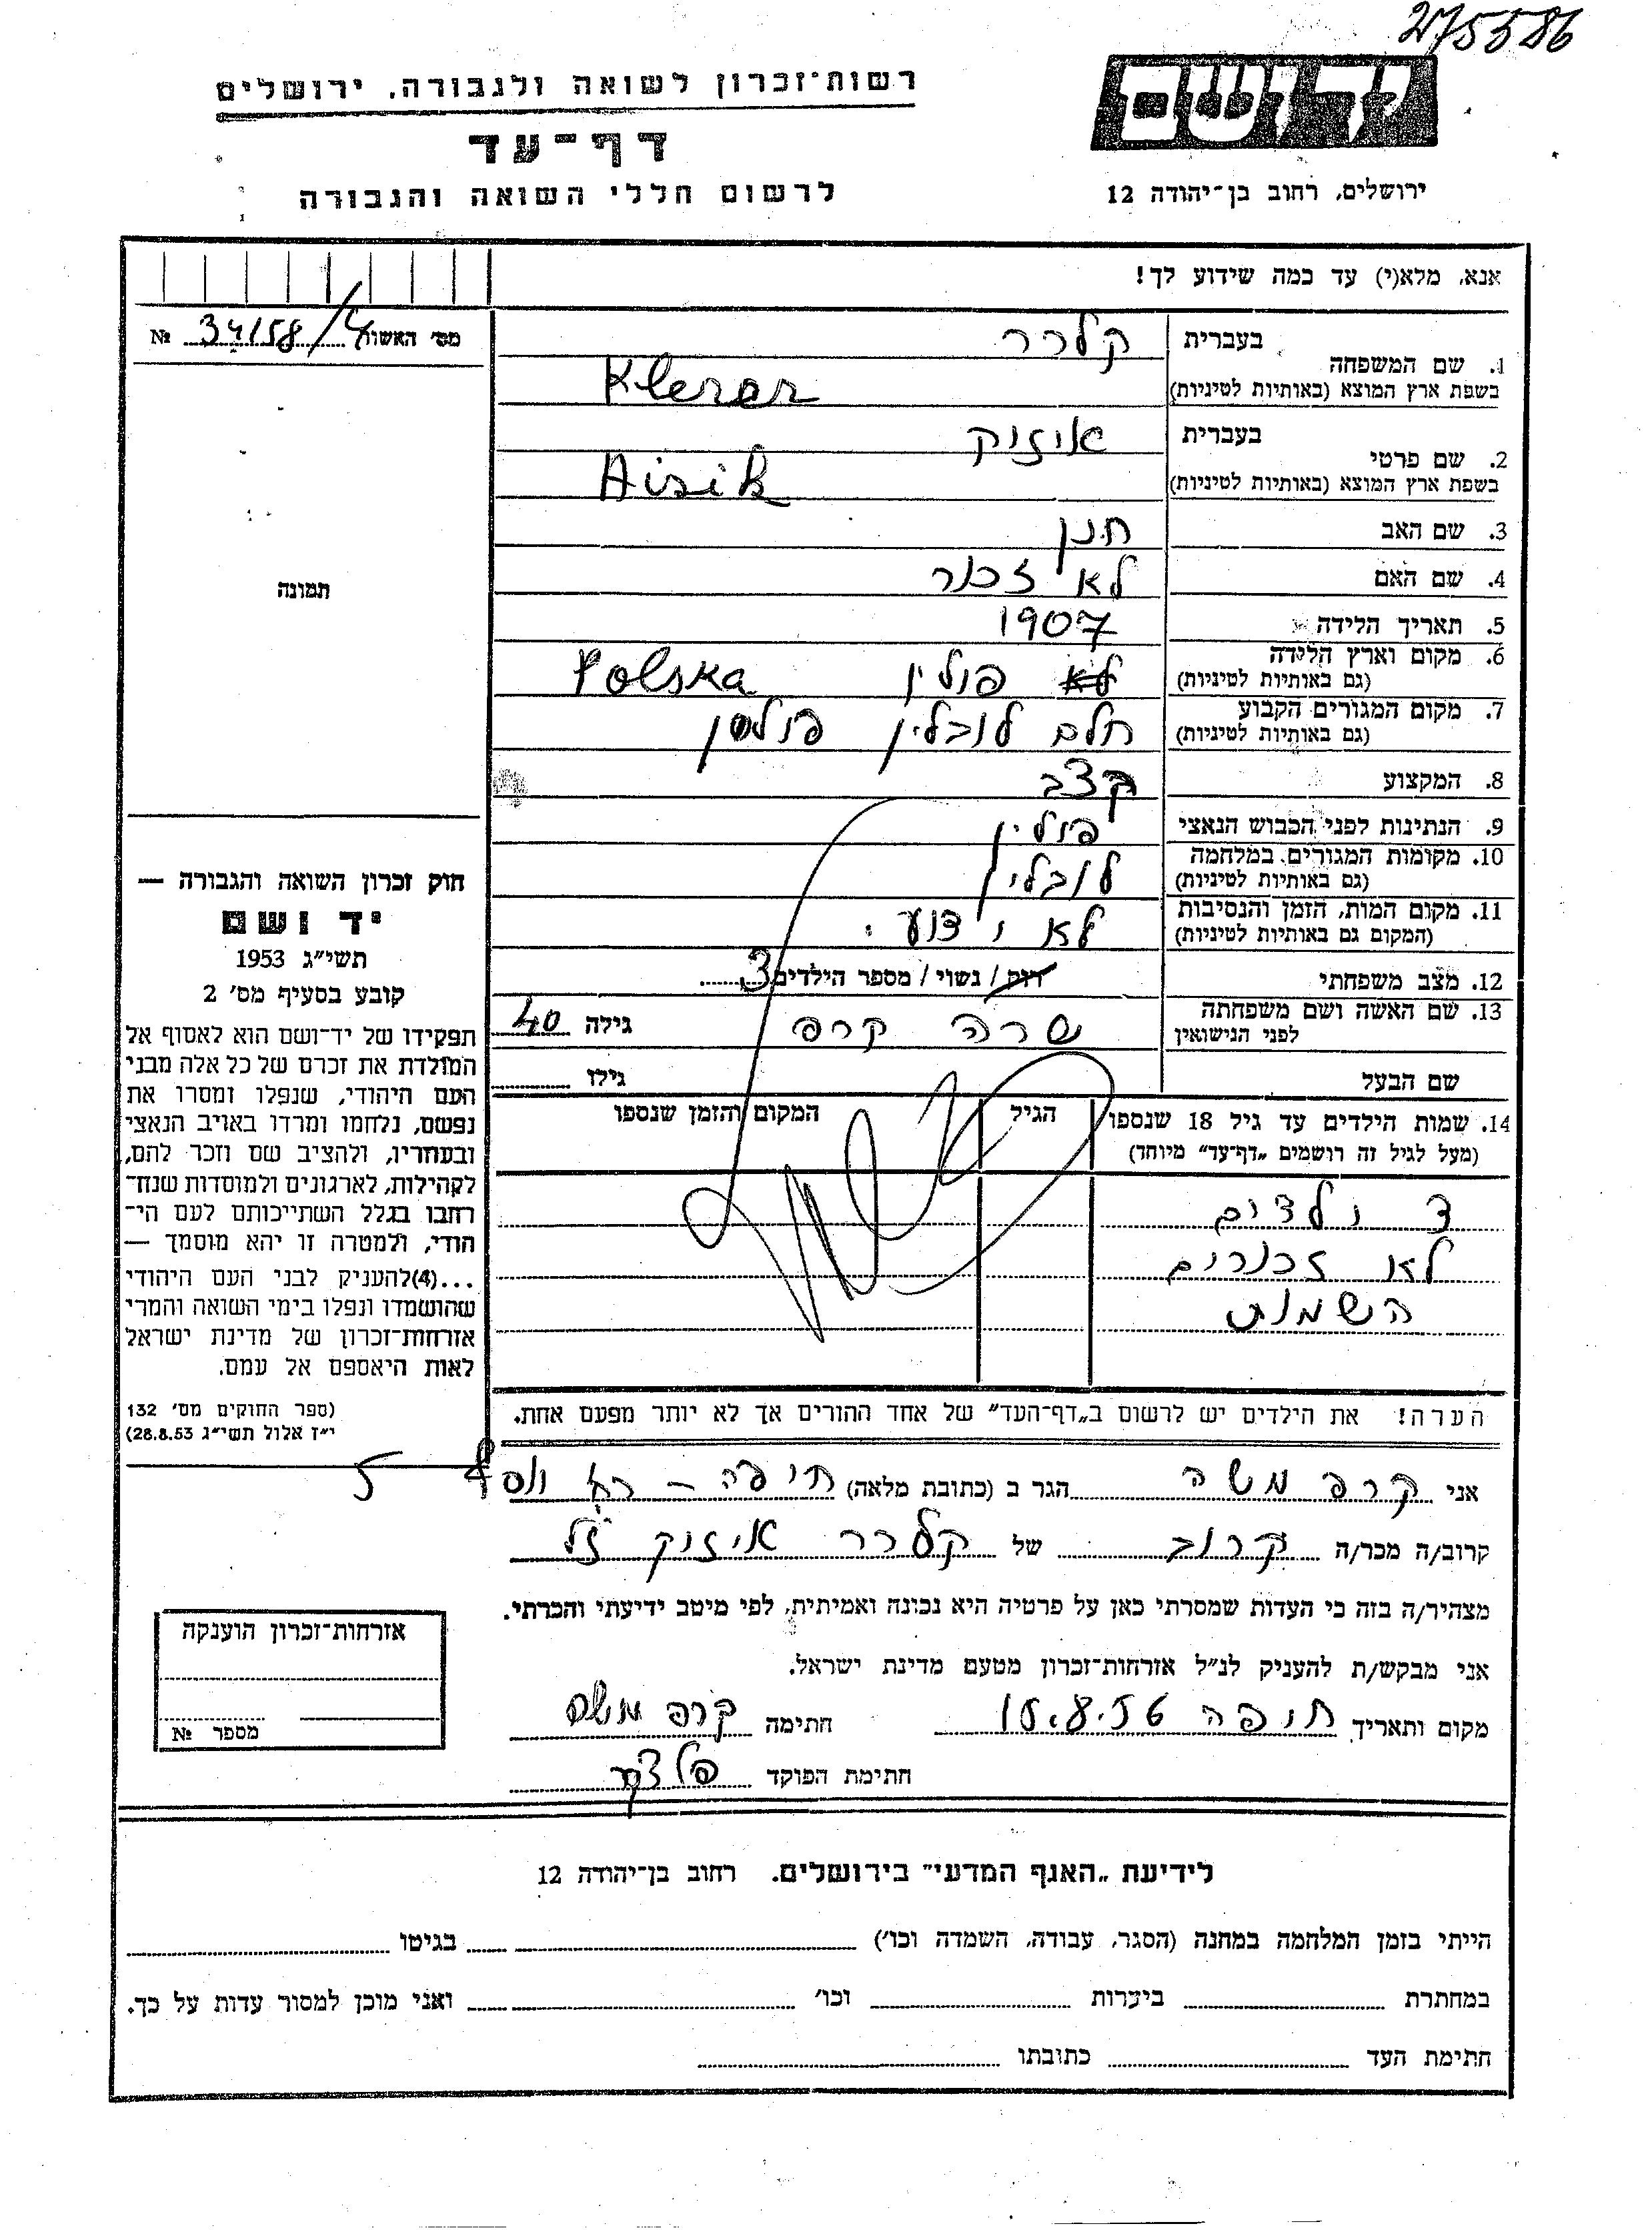 275586
יד ושם
ירושלים, רחוב בן־יהודה 12
רשות־זכרון לשואה ולגבורה, ירושלים
דף־עד
לרשום חללי השואה והגבורה
אנא, מלא(י) עד כמה שידוע לך!
מס' האשור 34158/4 №
תמונה
בעברית קלרר
1. שם המשפחה
בשפת ארץ המוצא (באותיות לטיניות) Klerer
בעברית איזיק
2. שם פרטי
בשפת ארץ המוצא (באותיות לטיניות) Aisik
3. שם האב חנן
4. שם האם לא זכור
5. תאריך הלידה 1907
6. מקום וארץ הלידה פולין Polska
(גם באותיות לטיניות)
7. מקום המגורים הקבוע חלם לובלין פולין
(גם באותיות לטיניות)
8. המקצוע קצב
9. הנתינות לפני הכבוש הנאצי פולין
10. מקומות המגורים במלחמה לובלין
(גם באותיות לטיניות)
11. מקום המות, הזמן והנסיבות לא ידוע.
(המקום גם באותיות לטיניות)
12. מצב משפחתי רווק / נשוי / מספר הילדים 3
13. שם האשה ושם משפחתה שרה קרפ גילה 40
לפני הנישואין
שם הבעל גילו
14. שמות הילדים עד גיל 18 שנספו הגיל המקום והזמן שנספו
(מעל לגיל זה רושמים „דף־עד" מיוחד)
3 ילדים
לא זכורים
השמות
הערה! את הילדים יש לרשום ב„דף־העד" של אחד ההורים אך לא יותר מפעם אחת.
חוק זכרון השואה והגבורה —
יד ושם
תשי"ג 1953
קובע בסעיף מס' 2
תפקידו של יד־ושם הוא לאסוף אל
המולדת את זכרם של כל אלה מבני
העם היהודי, שנפלו ומסרו את
נפשם, נלחמו ומרדו באויב הנאצי
ובעוזריו, ולהציב שם וזכר להם,
לקהילות, לארגונים ולמוסדות שנח־
רבו בגלל השתייכותם לעם הי־
הודי, ולמטרה זו יהא מוסמך —
...(4) להעניק לבני העם היהודי
שהושמדו ונפלו בימי השואה והמרי
אזרחות־זכרון של מדינת ישראל
לאות היאספם אל עמם.
(ספר החוקים מס' 132
י"ז אלול תשי"ג 28.8.53)
אני קרפ משה הגר ב (כתובת מלאה) חיפה –
קרוב/ה מכר/ה קרוב של קלרר איזיק ז"ל
מצהיר/ה בזה כי העדות שמסרתי כאן על פרטיה היא נכונה ואמיתית, לפי מיטב ידיעתי והכרתי.
אני מבקש/ת להעניק לנ"ל אזרחות־זכרון מטעם מדינת ישראל.
מקום ותאריך חיפה חתימה קרפ משה
חתימת הפוקד
אזרחות־זכרון הוענקה
מספר №
לידיעת „האגף המדעי" בירושלים, רחוב בן־יהודה 12
הייתי בזמן המלחמה במחנה (הסגר, עבודה, השמדה וכו') בגיטו
במחתרת ביערות וכו' ואני מוכן למסור עדות על כך.
חתימת העד כתובתו